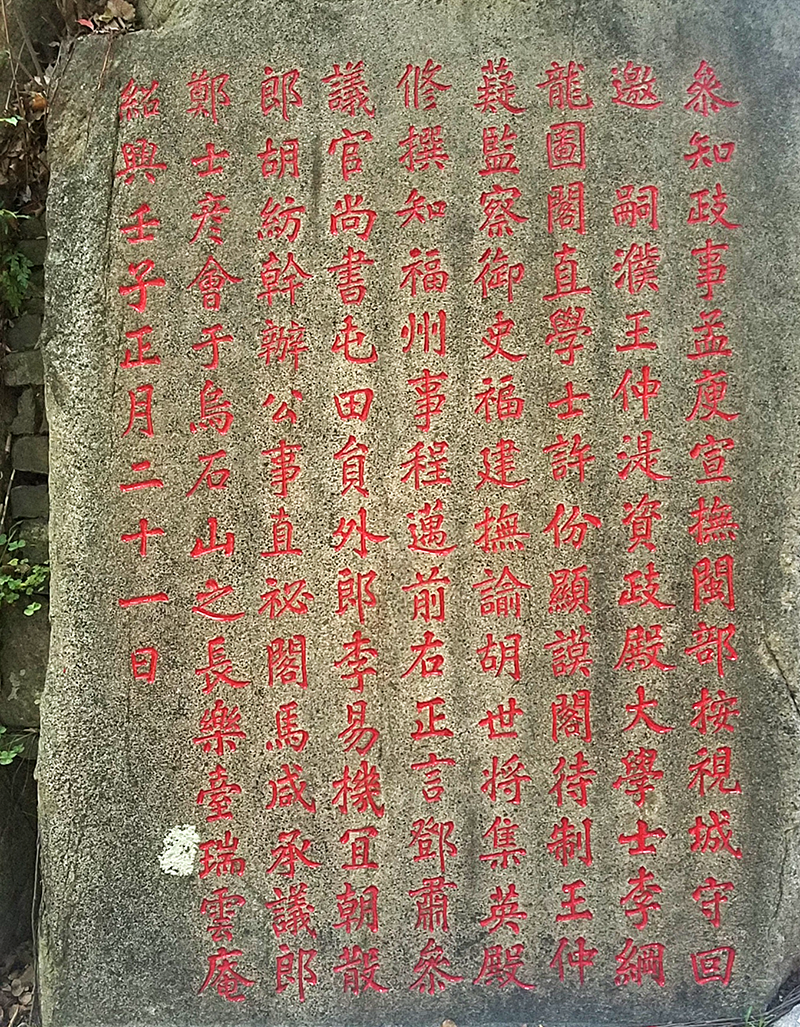 叅知政事孟庾宣撫閩部按視城守回
邀 嗣濮王仲湜資政殿大學士李綱
龍圖閣直學士許份顯謨閣待制王仲
薿監察御史福建撫諭胡世将集英殿
修撰知福州事程邁前右正言鄧肅叅
議官尚書屯田員外郎李易機冝朝散
郎胡紡幹辦公事直祕閣馬咸承議郎
鄭士彦會于烏石山之長樂臺瑞雲庵
紹興壬子正月二十一日